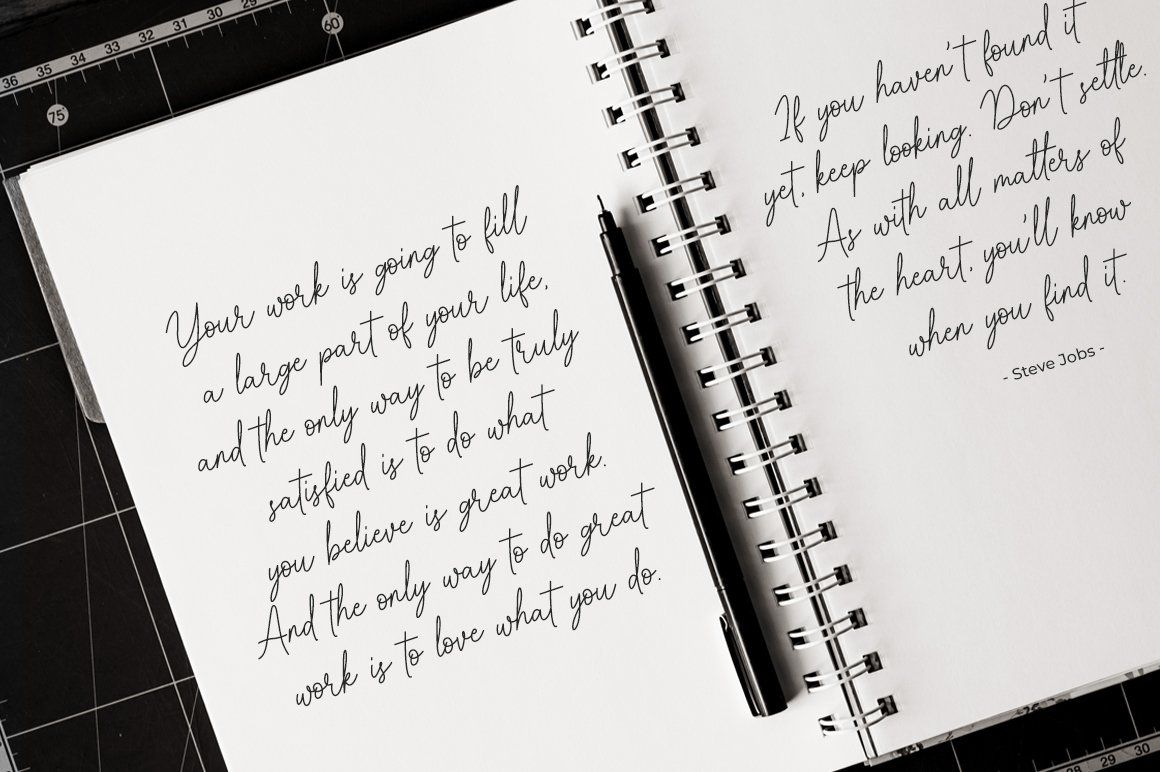 36 35 34 33 32 31 30 29
60°
75°
Your work is going to fill
a large part of your life,
and the only way to be truly
satisfied is to do what
you believe is great work.
And the only way to do great
work is to love what you do.
If you haven't found it
yet, keep looking. Don't settle.
As with all matters of
the heart, you'll know
when you find it.
- Steve Jobs -
28 29 30